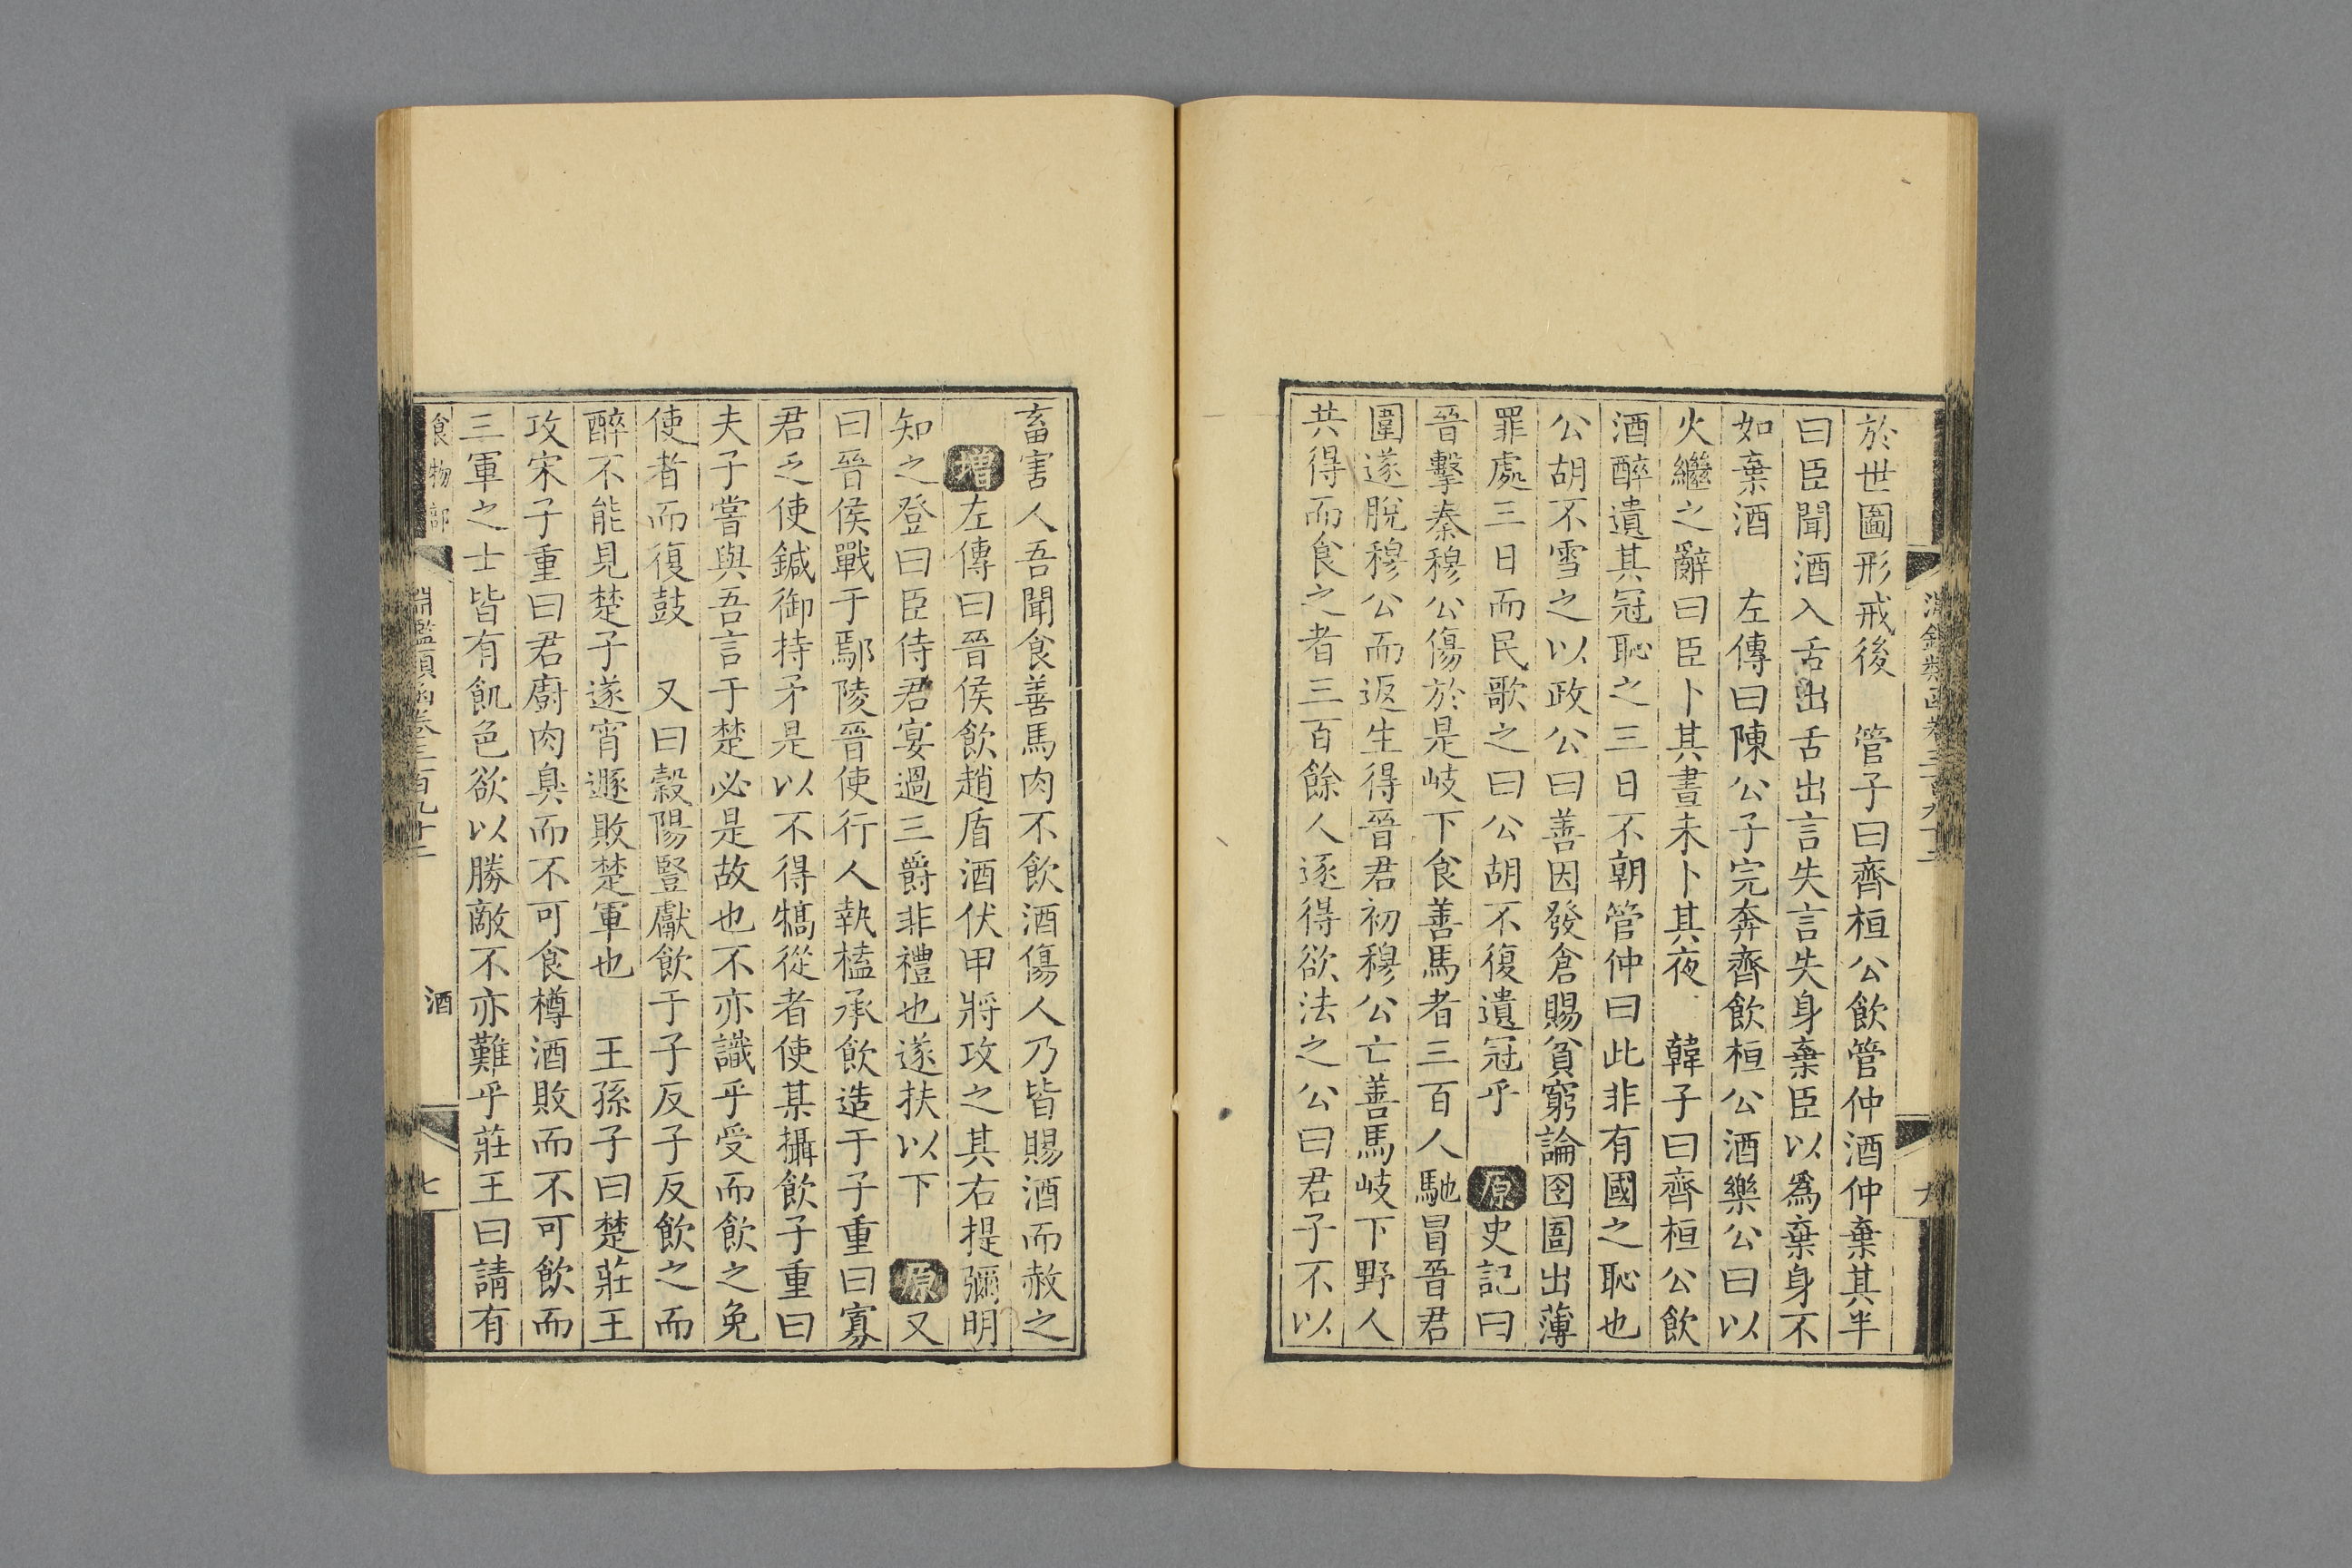 於世圖形戒後　管子曰齊桓公飲管仲酒仲棄其半
曰臣聞酒入舌出舌出言失言失身棄臣以爲棄身不
如棄酒　左傳曰陳公子完奔齊飲桓公酒樂公曰以
火繼之辭曰臣卜其晝未卜其夜　韓子曰齊桓公飲
酒醉遺其冠恥之三日不朝管仲曰此非有國之恥也
公胡不雪之以政公曰善因發倉賜貧窮論囹圄出薄
罪處三日而民歌之曰公胡不復遺冠乎　原史記曰
晉擊秦穆公傷於是岐下食善馬者三百人馳冒晉君
圍遂脫穆公而返生得晉君初穆公亡善馬岐下野人
共得而食之者三百餘人逐得欲法之公曰君子不以
畜害人吾聞食善馬肉不飲酒傷人乃皆賜酒而赦之
增左傳曰晉侯飲趙盾酒伏甲將攻之其右提彌明
知之登曰臣侍君宴過三爵非禮也遂扶以下　原又
曰晉侯戰于鄢陵晉使行人執榼承飲造于子重曰寡
君乏使鍼御持矛是以不得犒從者使某攝飲子重曰
夫子嘗與吾言于楚必是故也不亦識乎受而飲之免
使者而復鼓　又曰穀陽豎獻飲于子反子反飲之而
醉不能見楚子遂宵遯敗楚軍也　王孫子曰楚莊王
攻宋子重曰君廚肉臭而不可食樽酒敗而不可飲而
三軍之士皆有飢色欲以勝敵不亦難乎莊王曰請有
食物部　淵鑑類函卷三百九十二　酒　七